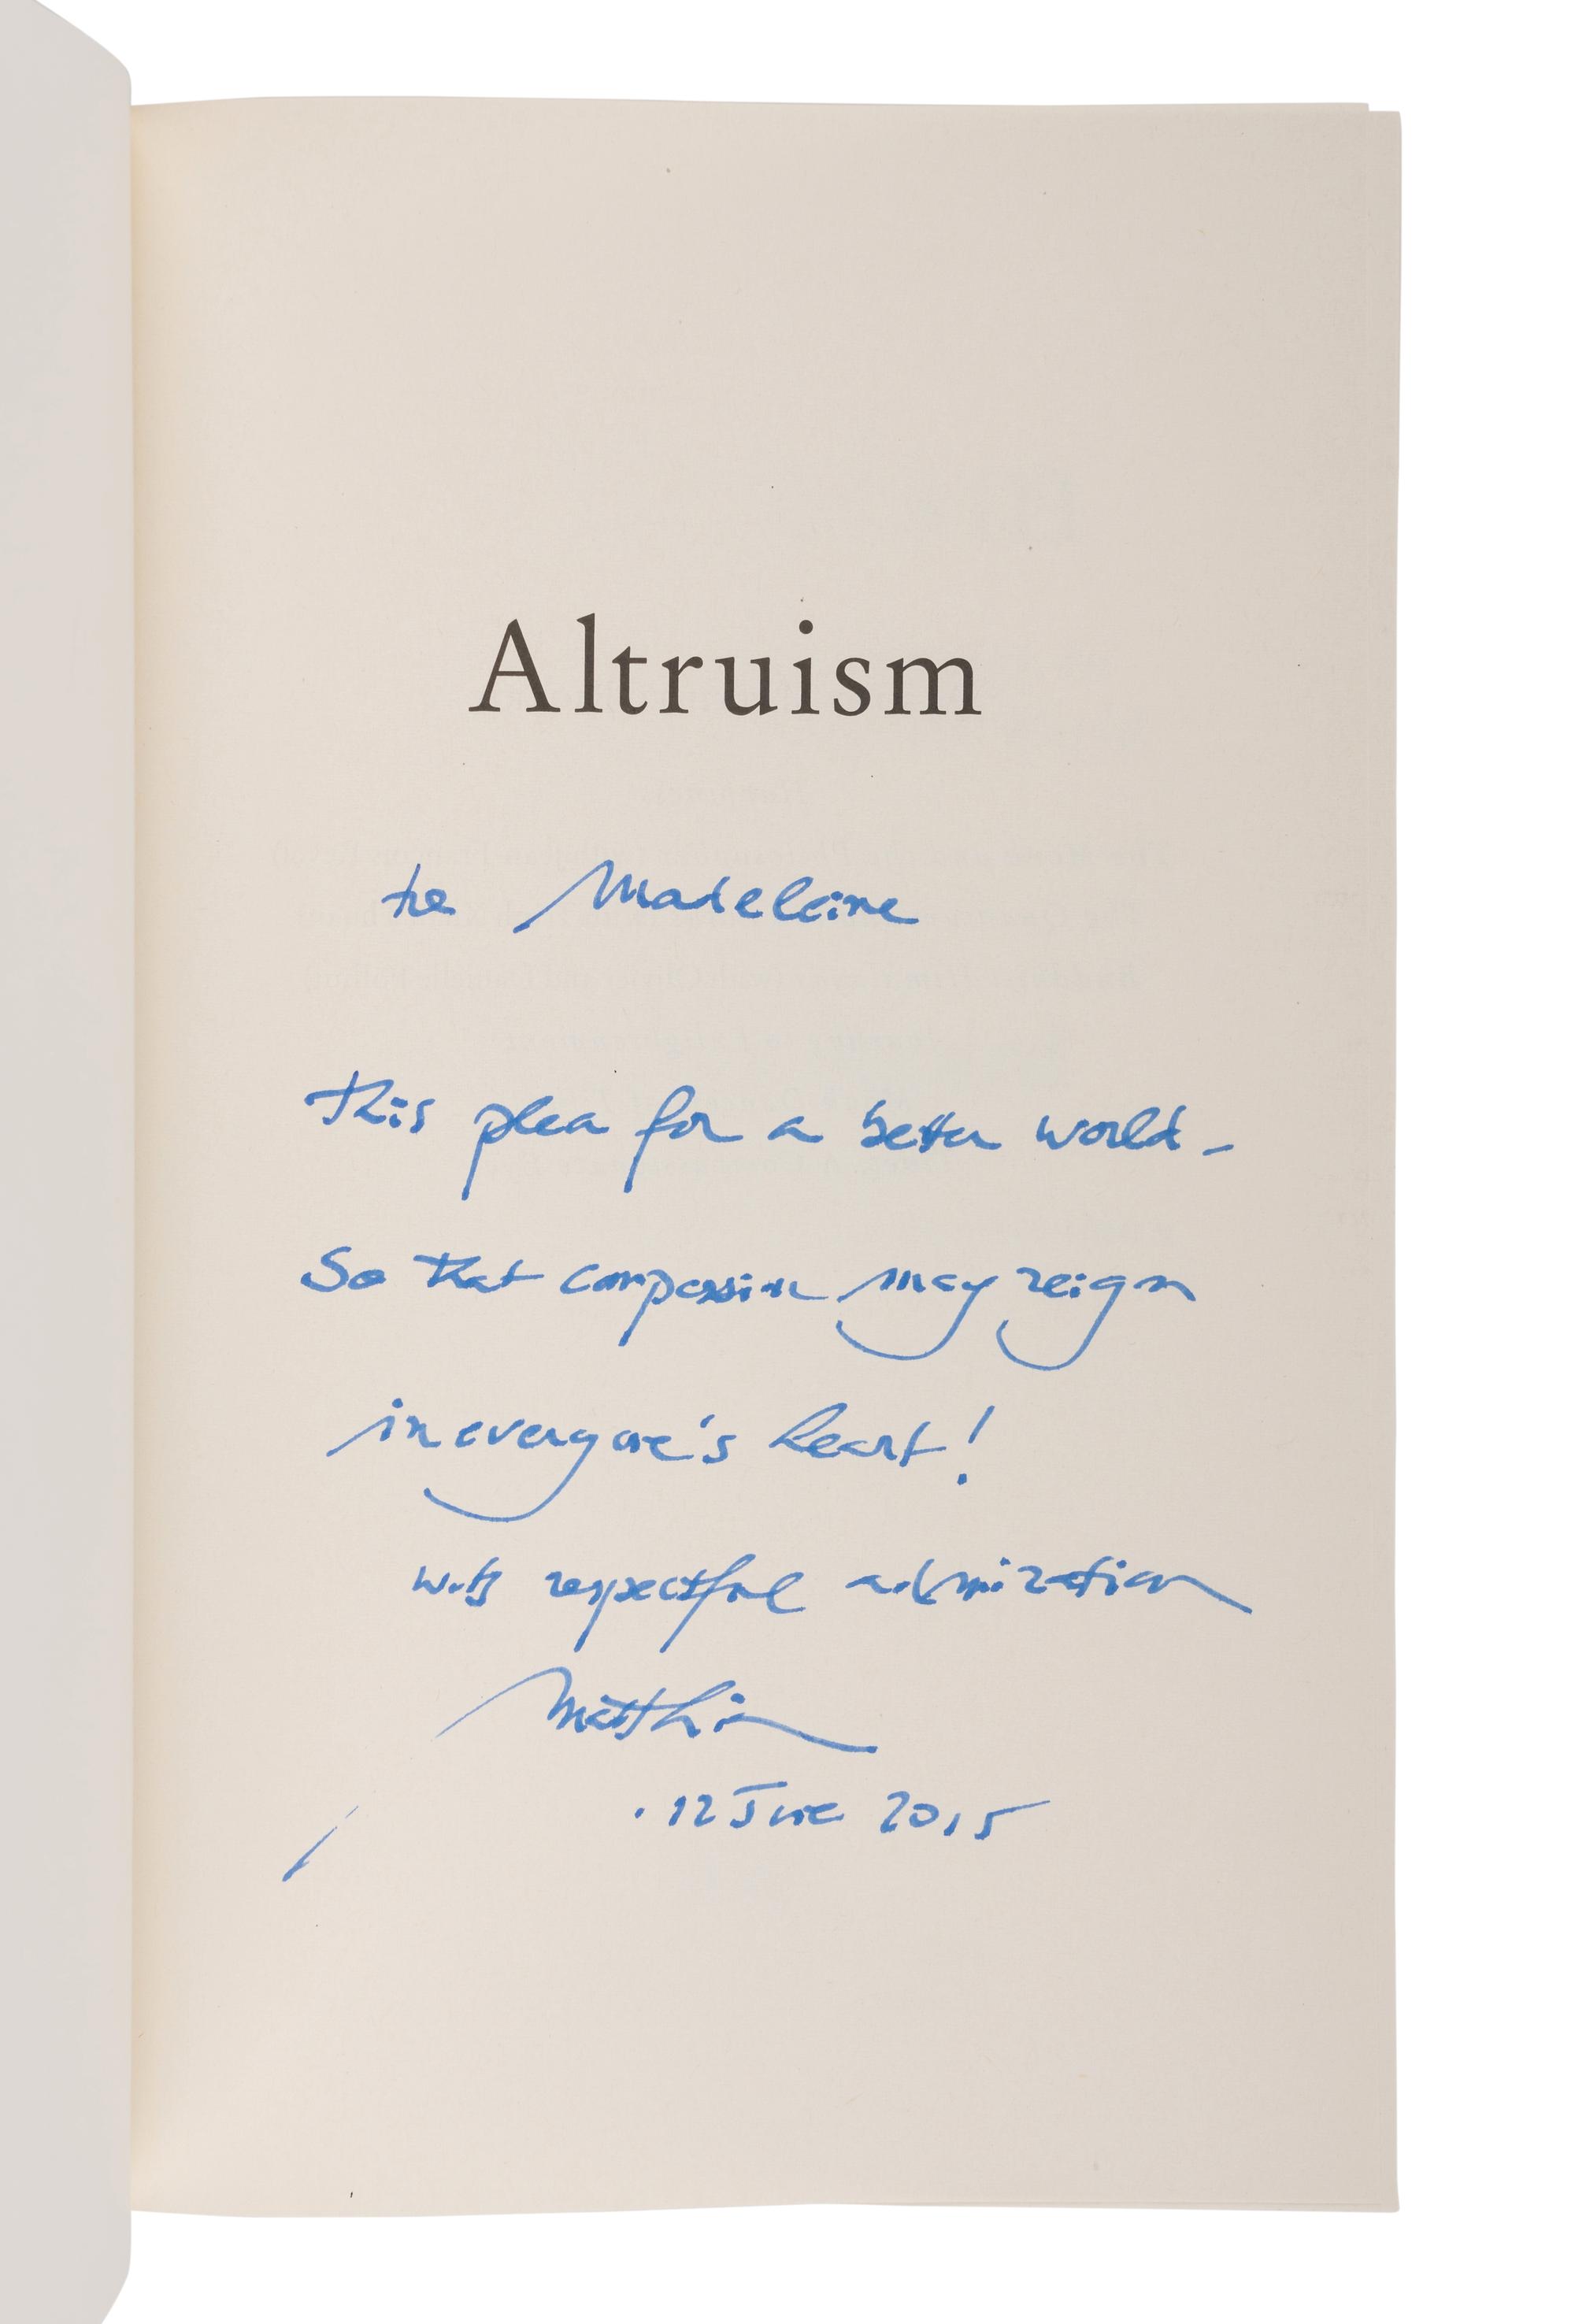 Altruism
to Madeleine
This plea for a better world -
So that compassion may reign
in everyone's heart!
with respectful admiration
Matthieu
12 June 2015